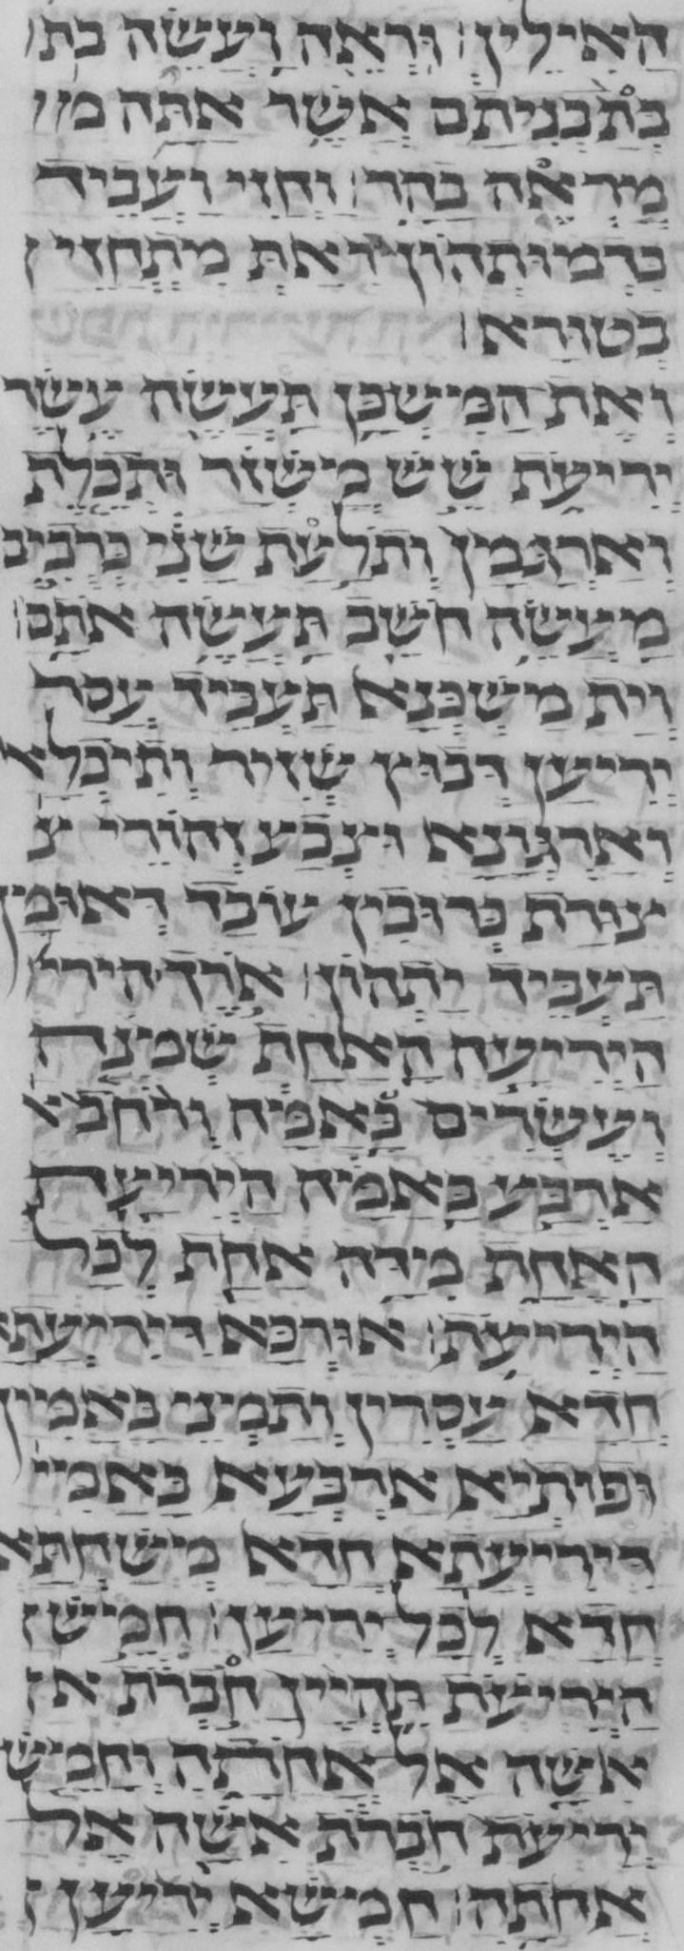 האילין׃ וראה ועשה בת
בתבניתם אשר אתה מ
מראה בהר׃ וחזי ועביד
בדמותהון דאת מתחזי
בטורא׃
ואת המשכן תעשה עשר
יריעת שש משזר ותכלת
וארגמן ותלעת שני כרבים
מעשה חשב תעשה אתם׃
וית משכנא תעביד עסר
יריען דבוץ שזיר ותיכלא
וארגונא וצבע זהורי צ
צורת כרובין עובד דאומין
תעביד יתהון׃ ארך הירי
היריעה האחת שמנה
ועשרים באמה ורחב א
ארבע באמה היריעה
האחת מידה אחת לכל
היריעת׃ אורכא דיריעתא
חדא עסרין ותמני באמין
ופותיא ארבעא באמי
דיריעתא חדא משחתא
חדא לכל יריען׃ חמש
היריעת תהיין חברת א
אשה אל אחתה וחמש
יריעת חברת אשה אל
אחתה׃ חמישא יריען